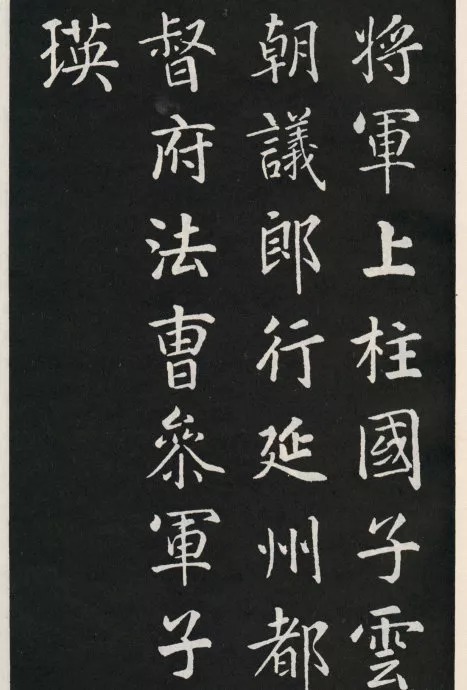 將軍上柱國子雲
朝議郎行延州都
督府法曹叅軍子
瑛